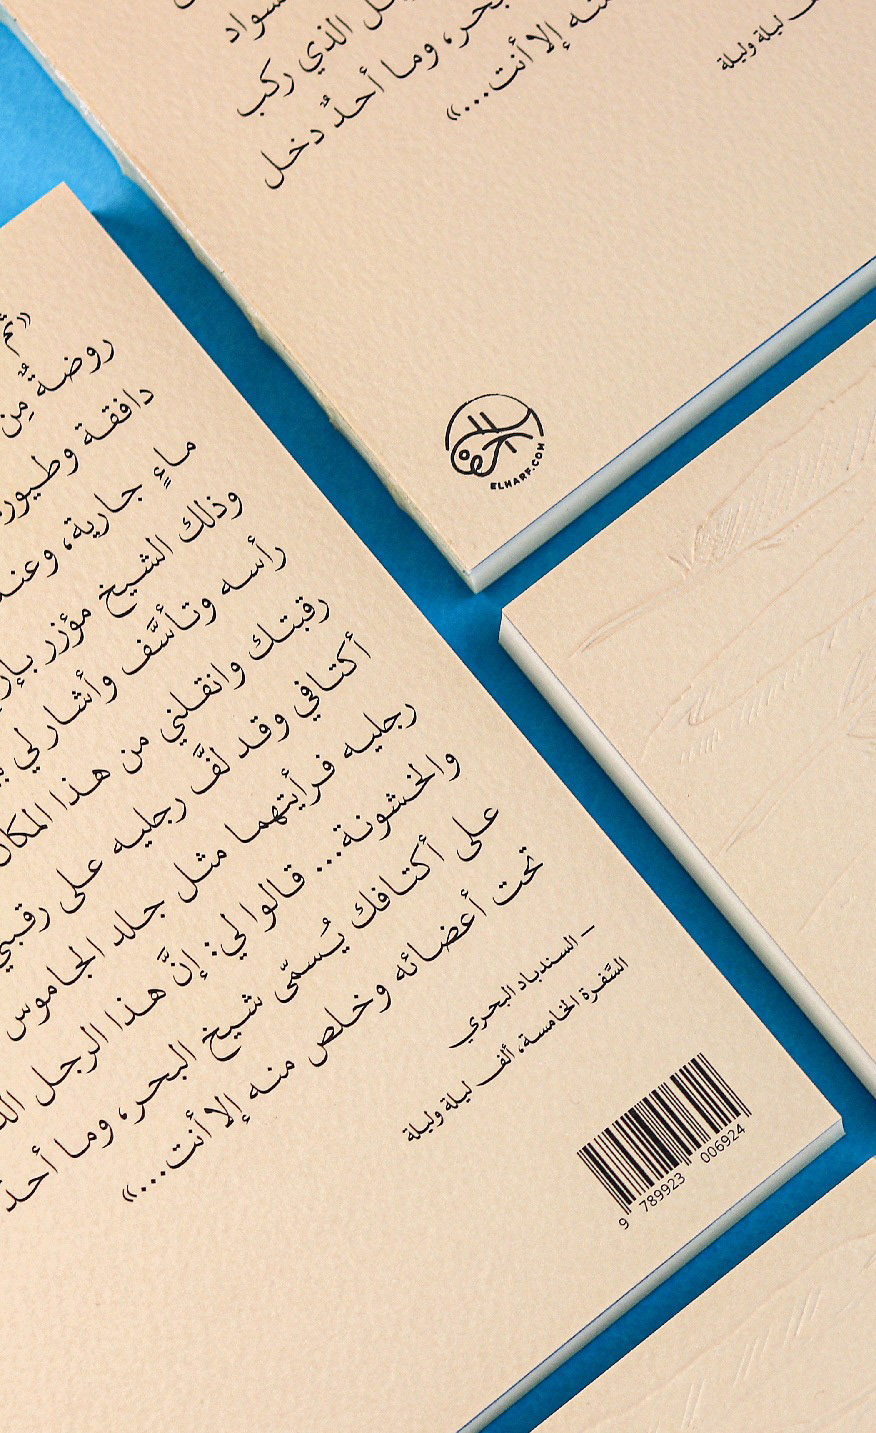 سواد
الذي ركب
بحر، وما أحدٌ دخل
منه إلا أنت...»
ليلة وليلة
ELHARF.COM
«ثم
روضةٌ مِن
دافقة وطيور
ماءٍ جارية، وعند
وذلك الشيخ مؤزر بإزا
رأسه وتأسَّف وأشار لي بي
رقبتك وانقلني من هذا المكان
أكتافي وقد لفَّ رجليه على رقبتي
رجليه فرأيتهما مثل جلد الجاموس
والخشونة... قالوا لي: إنَّ هذا الرجل الذ
على أكتافك يُسمّى شيخ البحر، وما أحدٌ
تحت أعضائه وخلص منه إلا أنت...»
– السندباد البحري
السَّفرة الخامسة، ألف ليلة وليلة
9 789923 006924